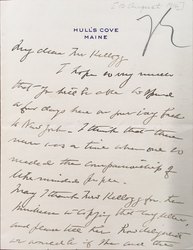 HULL'S COVE
MAINE
My dear Mr Kellogg
I hope so very much
that you will be able to spend
a few days here on your way back
to New York. I think that there
never was a time when one so
needed the companionship of
like minded people.
May I thank Mrs Kellogg for her
kindness in copying that long letter
and please tell her